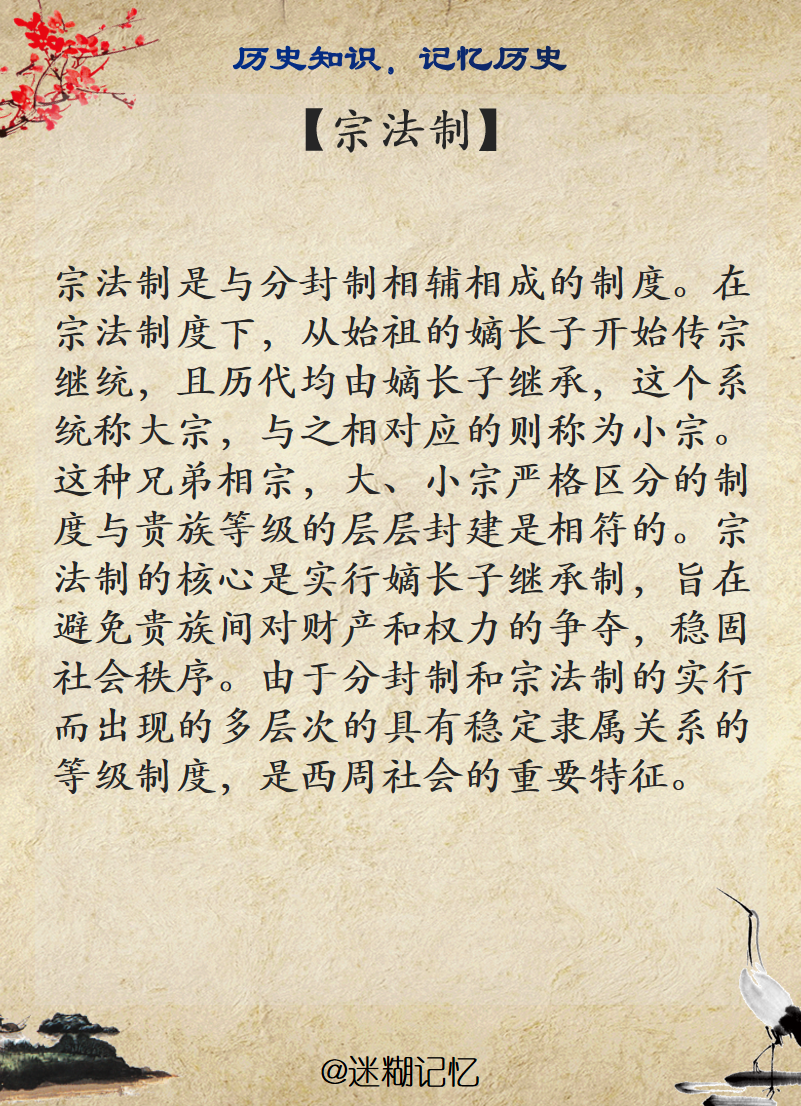 历史知识，记忆历史
【宗法制】
宗法制是与分封制相辅相成的制度。在
宗法制度下，从始祖的嫡长子开始传宗
继统，且历代均由嫡长子继承，这个系
统称大宗，与之相对应的则称为小宗。
这种兄弟相宗，大、小宗严格区分的制
度与贵族等级的层层封建是相符的。宗
法制的核心是实行嫡长子继承制，旨在
避免贵族间对财产和权力的争夺，稳固
社会秩序。由于分封制和宗法制的实行
而出现的多层次的具有稳定隶属关系的
等级制度，是西周社会的重要特征。
@迷糊记忆